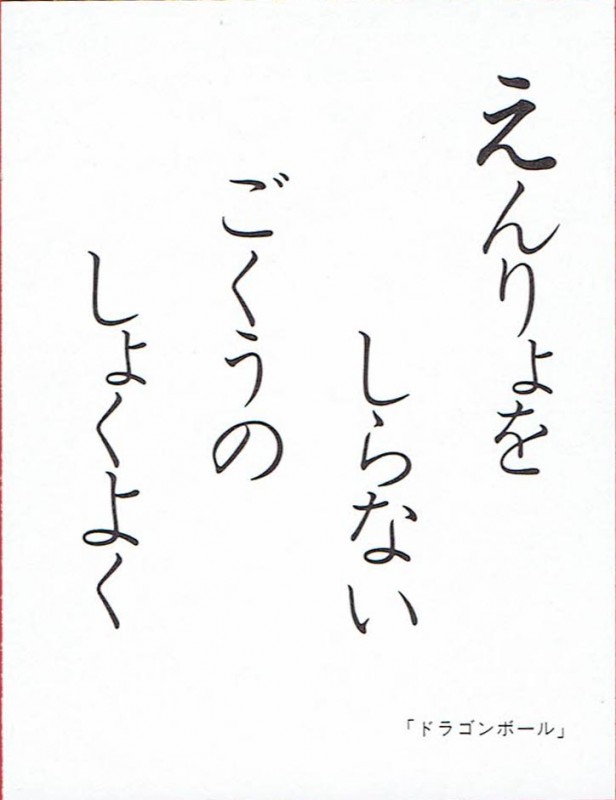 えんりょを
しらない
ごくうの
しょくよく
「ドラゴンボール」